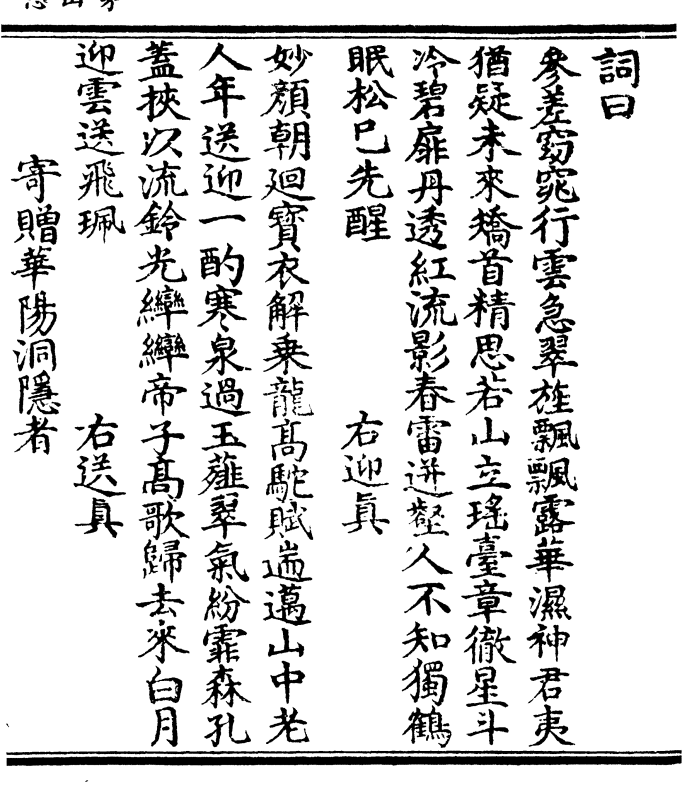 詞曰
參差窈窕行雲急翠旌飄飄露華濕神君夷
猶疑未來矯首精思若山立瑤臺章徹星斗
冷碧扉丹透紅流影春雷迸壑人不知獨鶴
眠松巳先醒　右迎眞
妙顏朝廻寶衣解乗龍髙駝賦遄邁山中老
人年送迎一酌寒泉過玉薤翠氣紛霏森孔
蓋挾以流鈴光繂繂帝子髙歌歸去來白月
迎雲送飛珮　右送眞
寄贈華陽洞隱者